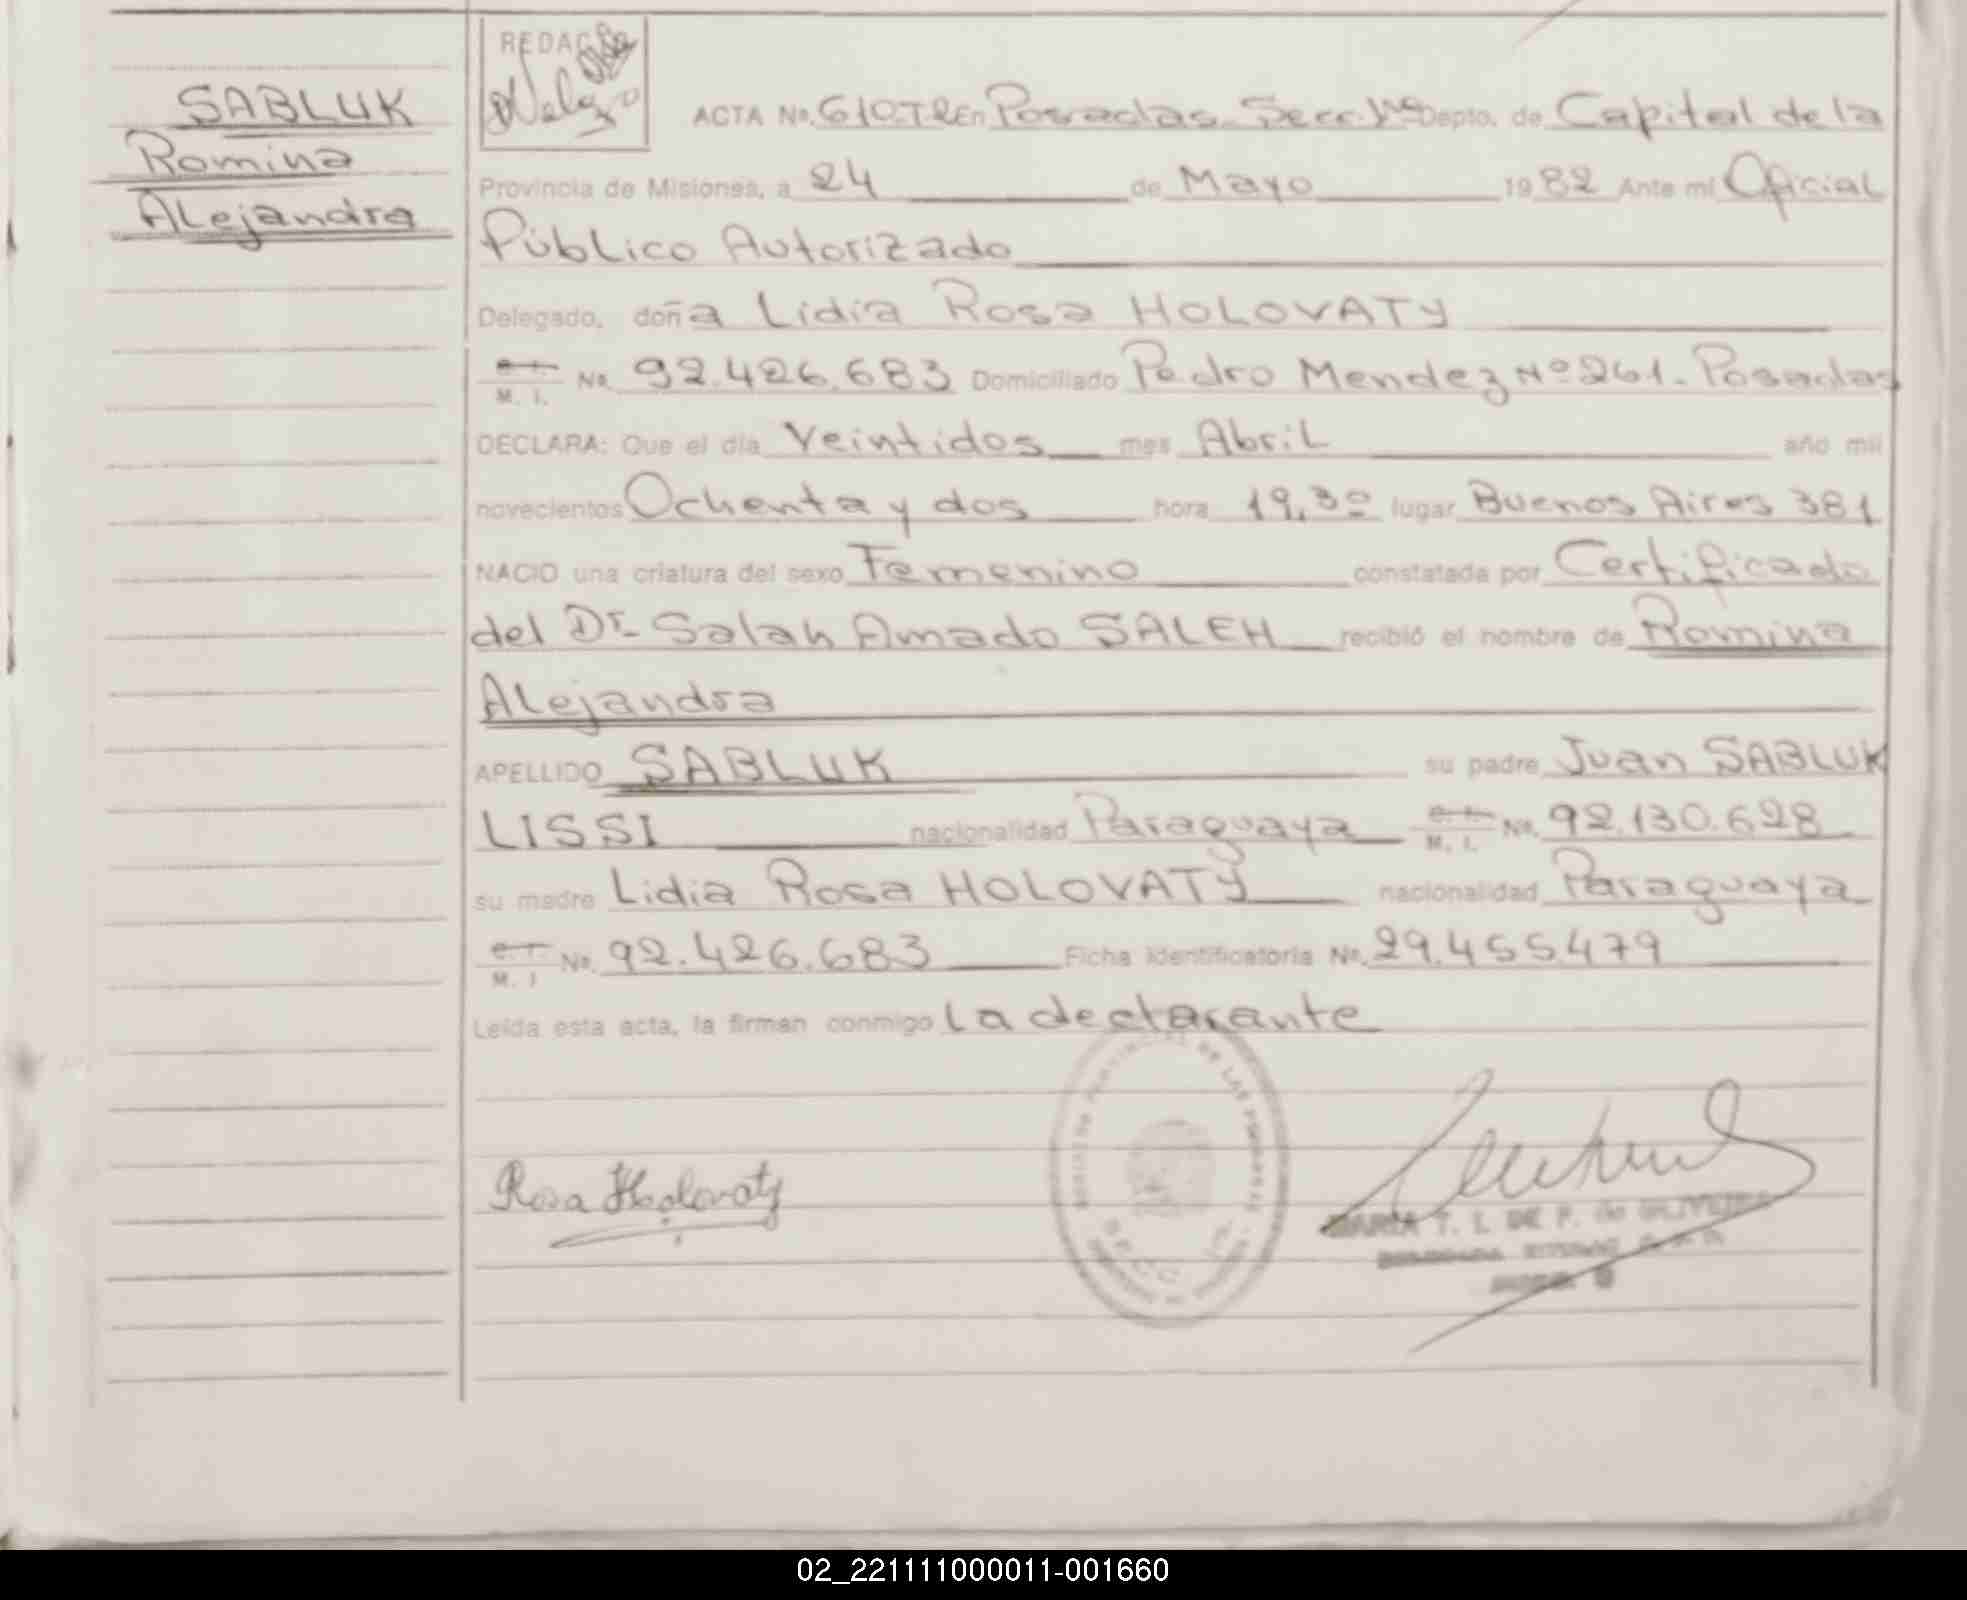 SABLUK
Romina
Alejandra
REDACTO
ACTA No. 610.T.2 En Posadas. Secc. 1ra Depto. de Capital de la
Provincia de Misiones, a 24 de Mayo 1982 Ante mi Oficial
Público Autorizado
Delegado, doña Lidia Rosa HOLOVATY
C.I. M. I. No. 92.426.683 Domiciliado Pedro Mendez Nº 261. Posadas
DECLARA: Que el día Veintidos mes Abril año mil
novecientos Ochenta y dos hora 19,30 lugar Buenos Aires 381
NACIO una criatura del sexo Femenino constatada por Certificado
del Dr. Salah Amado SALEH recibió el nombre de Romina
Alejandra
APELLIDO SABLUK su padre Juan SABLUK
LISSI nacionalidad Paraguaya C.I. M. I. No. 92.130.628
su madre Lidia Rosa HOLOVATY nacionalidad Paraguaya
C.I. M. I No. 92.426.683 Ficha identificatoria No. 29.455.479
Leída esta acta, la firman conmigo la declarante
PROVINCIAL DE LAS PERSONAS
SECC. 1ra.
Rosa Holovaty
MARIA T. I. DE F. de OLIVEIRA
02_221111000011-001660